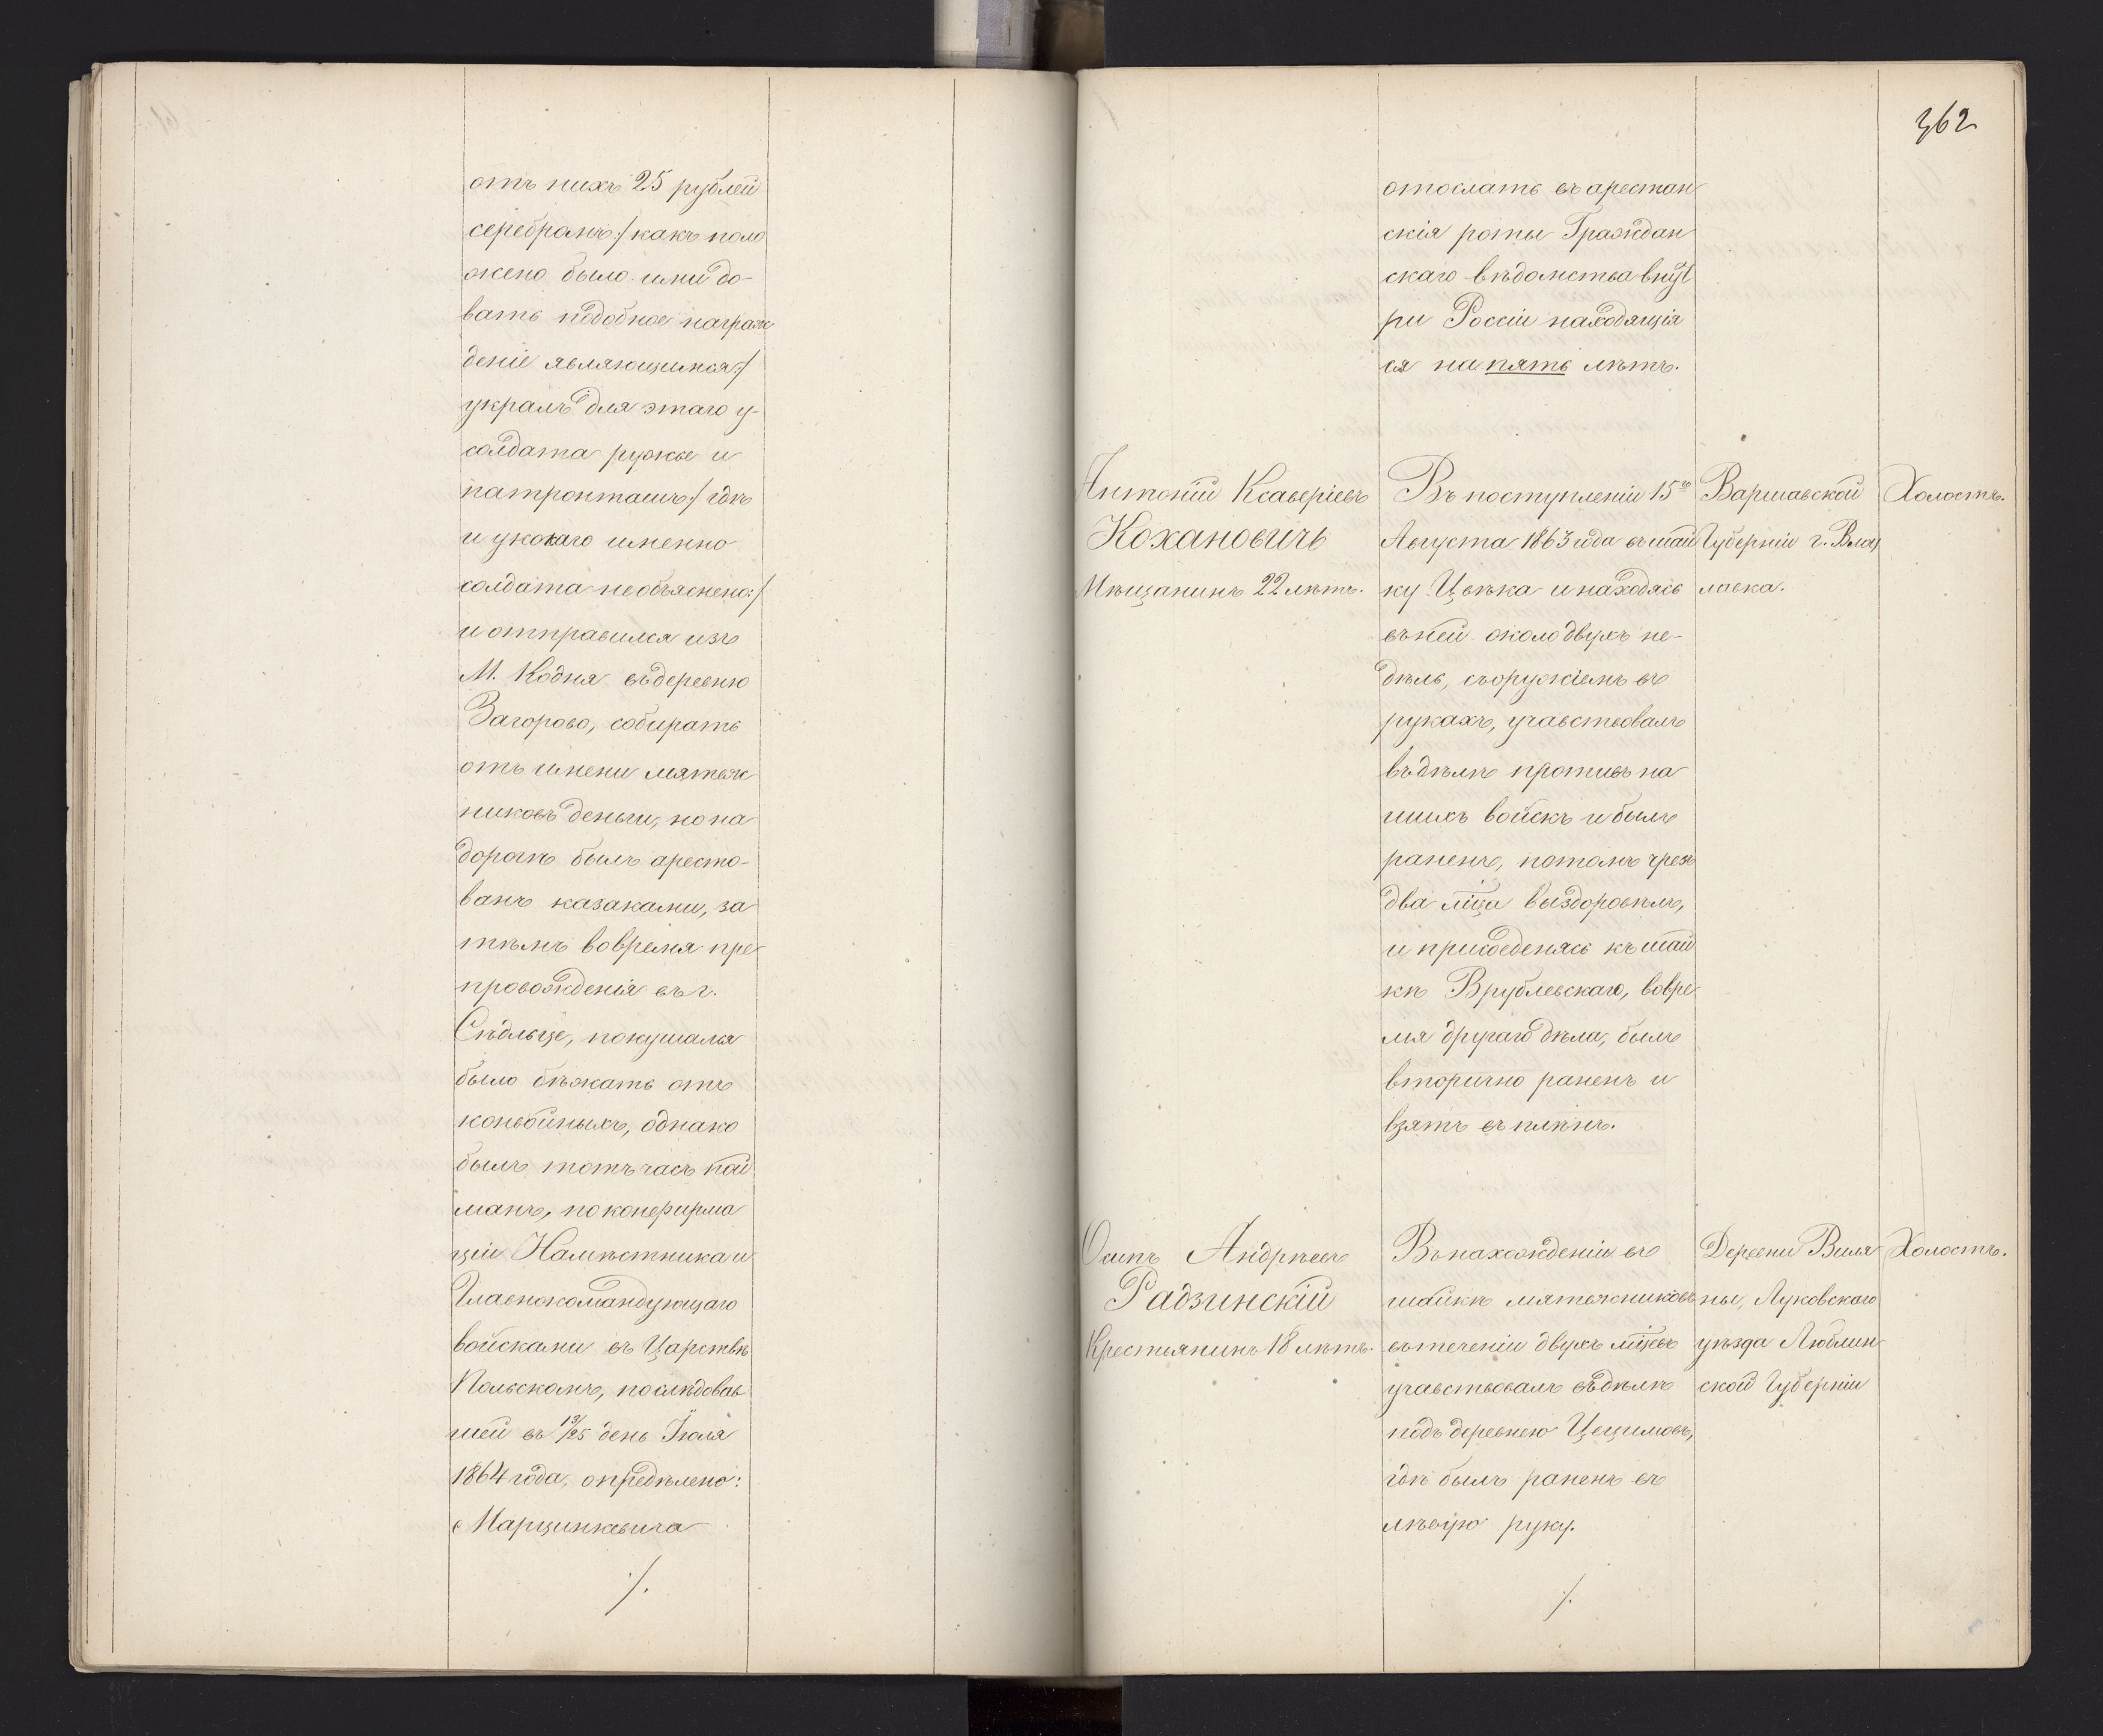 отъ нихъ 25 рублей
серебромъ:/ какъ поло
жено было ими до-
вать подобное награж
деніе являющимся:/
укралъ для этаго у-
солдата ружье и
патронташъ:/ гдѣ
и у кокаго именно
солдата необъяснено:/
и отправился изъ
М. Кодня въ деревню
Загорово, собирать
отъ имени мятеж
никовъ деньги, но на
дорогѣ былъ аресто-
ванъ казаками, за
тѣмъ вовремя пре
провожденія въ г.
Сѣдльце, покушался
было бѣжать отъ
конвойныхъ, однако
былъ тотъ часъ пой
манъ, по конфирма
ціи Намѣстника и
Главнокомандующаго
войсками въ Царствѣ
Польскомъ, послѣдовав
шей въ 13/25 день Іюля
1864 года, опредѣлено:
Марцинкевича
·/.
362
отослать въ арестан
скія роты Граждан
скаго вѣдомства внут
ри Россіи находящія
ся на пять лѣтъ.
Антоній Ксаверіевъ
Кохановичъ
Мѣщанинъ 22 лѣтъ.
Въ поступленіи 15го
Августа 1863 года въ шай
ку Цвѣка и находясь
въ ней около двухъ не-
дѣль, съ оружіемъ въ
рукахъ, учавствовалъ
въ дѣлѣ противъ на
шихъ войскъ и былъ
раненъ, потомъ чрезъ
два мца выздоровѣлъ,
и присоеденясь къ шай
кѣ Врублевскаго, вовре
мя другаго дѣла, былъ
вторично раненъ и
взятъ въ плѣнъ.
Варшавской
Губерніи г. Влоц
лавка.
Холостъ.
Осипъ Андрѣевъ
Радзинскій
Крестьянинъ 18 лѣтъ.
Въ нахожденіи въ
шайкѣ мятежниковъ
въ теченіи двухъ мцевъ
учавствовалъ въ дѣлѣ
подъ деревнею Цецимовъ,
гдѣ былъ раненъ въ
лѣвую руку.
·/.
Деревни Виля
ны, Луковскаго
уѣзда Люблин
ской Губерніи
Холостъ.